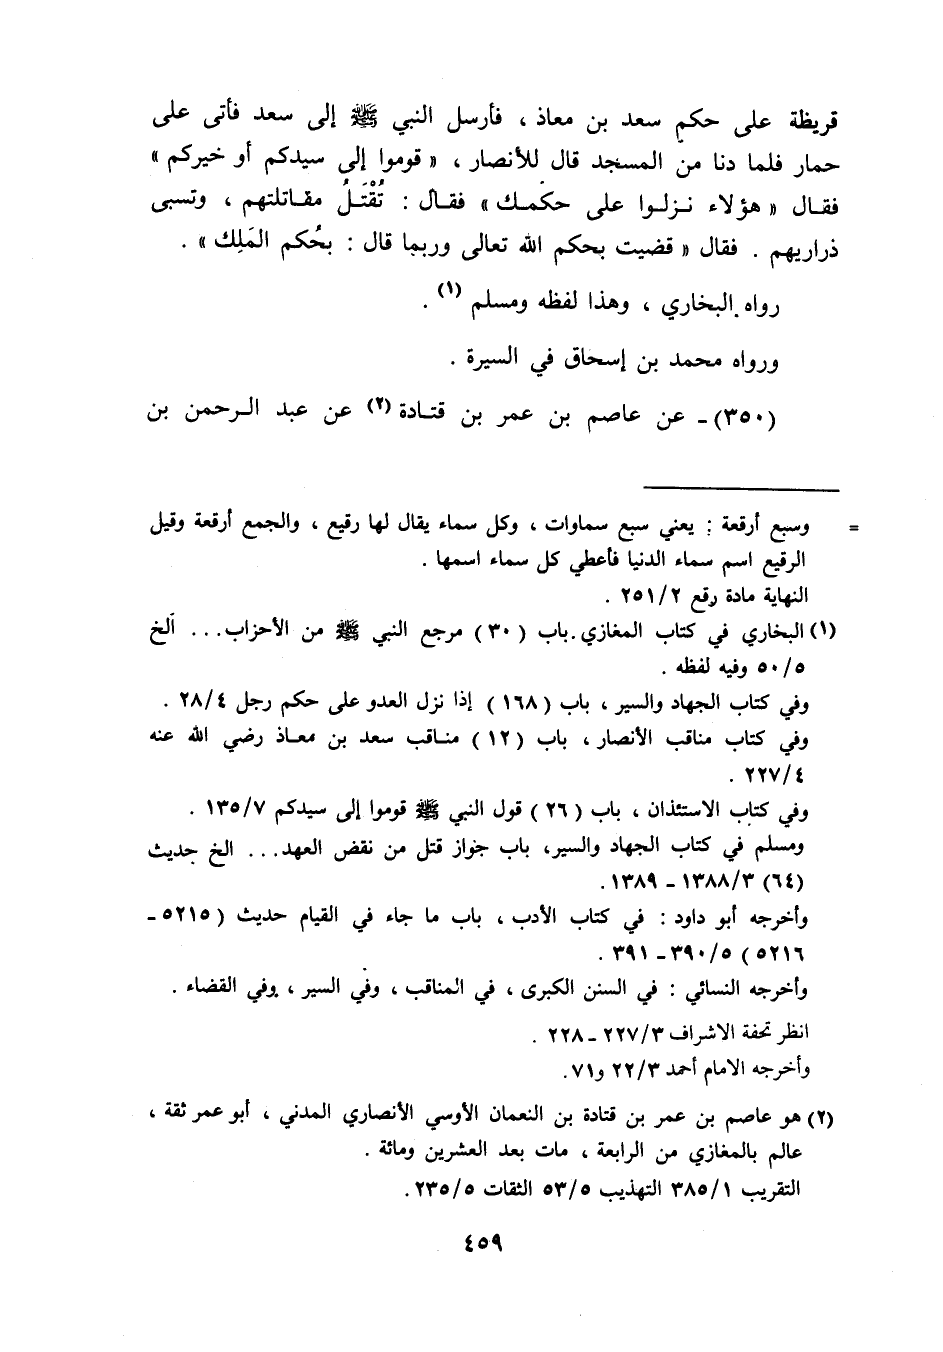 قريظة على حكم سعد بن معاذ ، فأرسل النبي ﷺ إلى سعد فأتى على
حمار فلما دنا من المسجد قال للأنصار ، « قوموا إلى سيدكم أو خيركم »
فقال « هؤلاء نزلوا على حكمك » فقال : تُقْتَلُ مقاتلتهم ، وتسبى
ذراريهم . فقال « قضيت بحكم الله تعالى وربما قال : بحُكم المَلِك » .
رواه البخاري ، وهذا لفظه ومسلم (١) .
ورواه محمد بن إسحاق في السيرة .
(٣٥٠) ـ عن عاصم بن عمر بن قتادة (٢) عن عبد الرحمن بن
= وسبع أرقعة : يعني سبع سماوات ، وكل سماء يقال لها رقيع ، والجمع أرقعة وقيل
الرقيع اسم سماء الدنيا فأعطي كل سماء اسمها .
النهاية مادة رقع ٢٥١/٢ .
(١) البخاري في كتاب المغازي باب ( ٣٠ ) مرجع النبي ﷺ من الأحزاب... ألخ
٥٠/٥ وفيه لفظه .
وفي كتاب الجهاد والسير ، باب ( ١٦٨ ) إذا نزل العدو على حكم رجل ٢٨/٤ .
وفي كتاب مناقب الأنصار ، باب ( ١٢ ) مناقب سعد بن معاذ رضي الله عنه
٢٢٧/٤ .
وفي كتاب الاستئذان ، باب ( ٢٦ ) قول النبي ﷺ قوموا إلى سيدكم ١٣٥/٧ .
ومسلم في كتاب الجهاد والسير، باب جواز قتل من نقض العهد... الخ حديث
(٦٤) ١٣٨٨/٣ ـ ١٣٨٩ .
وأخرجه أبو داود : في كتاب الأدب ، باب ما جاء في القيام حديث ( ٥٢١٥ ـ
٥٢١٦ ) ٣٩٠/٥ ـ ٣٩١ .
وأخرجه النسائي : في السنن الكبرى ، في المناقب ، وفي السير ، وفي القضاء .
انظر تحفة الاشراف ٢٢٧/٣ ـ ٢٢٨ .
وأخرجه الامام أحمد ٢٢/٣ و٧١.
(٢) هو عاصم بن عمر بن قتادة بن النعمان الأوسي الأنصاري المدني ، أبو عمر ثقة ،
عالم بالمغازي من الرابعة ، مات بعد العشرين ومائة .
التقريب ٣٨٥/١ التهذيب ٥٣/٥ الثقات ٢٣٥/٥ .
٤٥٩